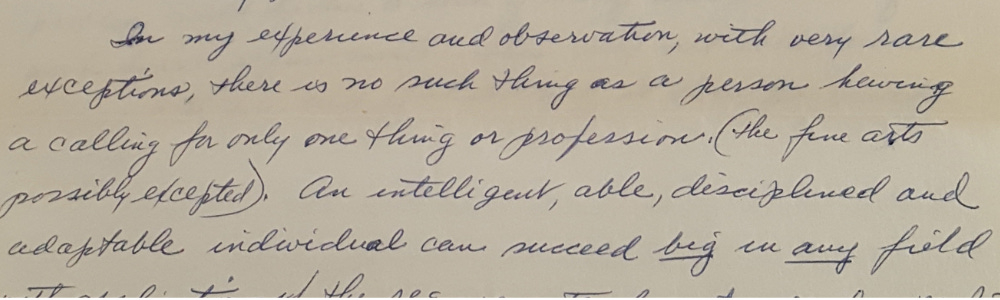 In my experience and observation, with very rare
exceptions, there is no such thing as a person having
a calling for only one thing or profession. (the fine arts
possibly excepted). An intelligent, able, disciplined and
adaptable individual can succeed big in any field
the